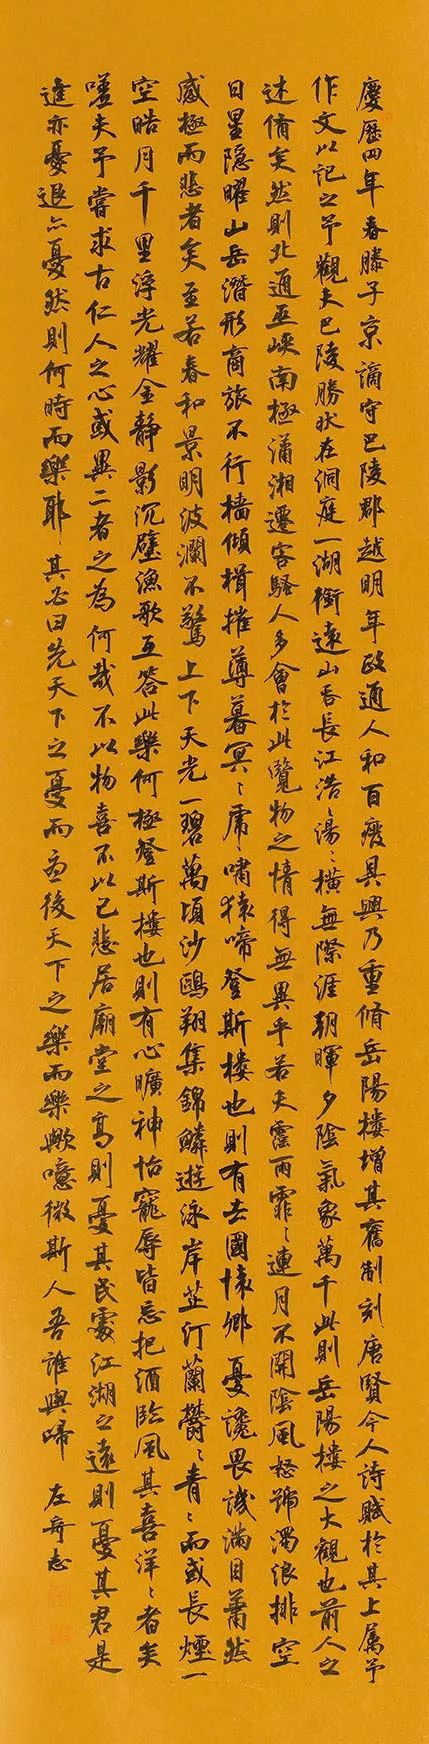 慶歷四年春滕子京謫守巴陵郡越明年政通人和百廢具興乃重脩岳陽樓增其舊制刻唐賢今人詩賦於其上屬予
作文以記之予觀夫巴陵勝狀在洞庭一湖銜遠山吞長江浩〻湯〻橫無際涯朝暉夕陰氣象萬千此則岳陽樓之大觀也前人之
述備矣然則北通巫峽南極瀟湘遷客騷人多會於此覽物之情得無異乎若夫霪雨霏〻連月不開陰風怒號濁浪排空
日星隱曜山岳潛形商旅不行檣傾楫摧薄暮冥〻虎嘯猿啼登斯樓也則有去國懷鄉憂讒畏譏滿目蕭然
感極而悲者矣至若春和景明波瀾不驚上下天光一碧萬頃沙鷗翔集錦鱗遊泳岸芷汀蘭鬱〻青〻而或長煙一
空皓月千里浮光耀金靜影沉璧漁歌互答此樂何極登斯樓也則有心曠神怡寵辱皆忘把酒臨風其喜洋〻者矣
嗟夫予嘗求古仁人之心或異二者之為何哉不以物喜不以己悲居廟堂之高則憂其民處江湖之遠則憂其君是
進亦憂退亦憂然則何時而樂耶其必曰先天下之憂而憂後天下之樂而樂歟噫微斯人吾誰與歸 左奇志